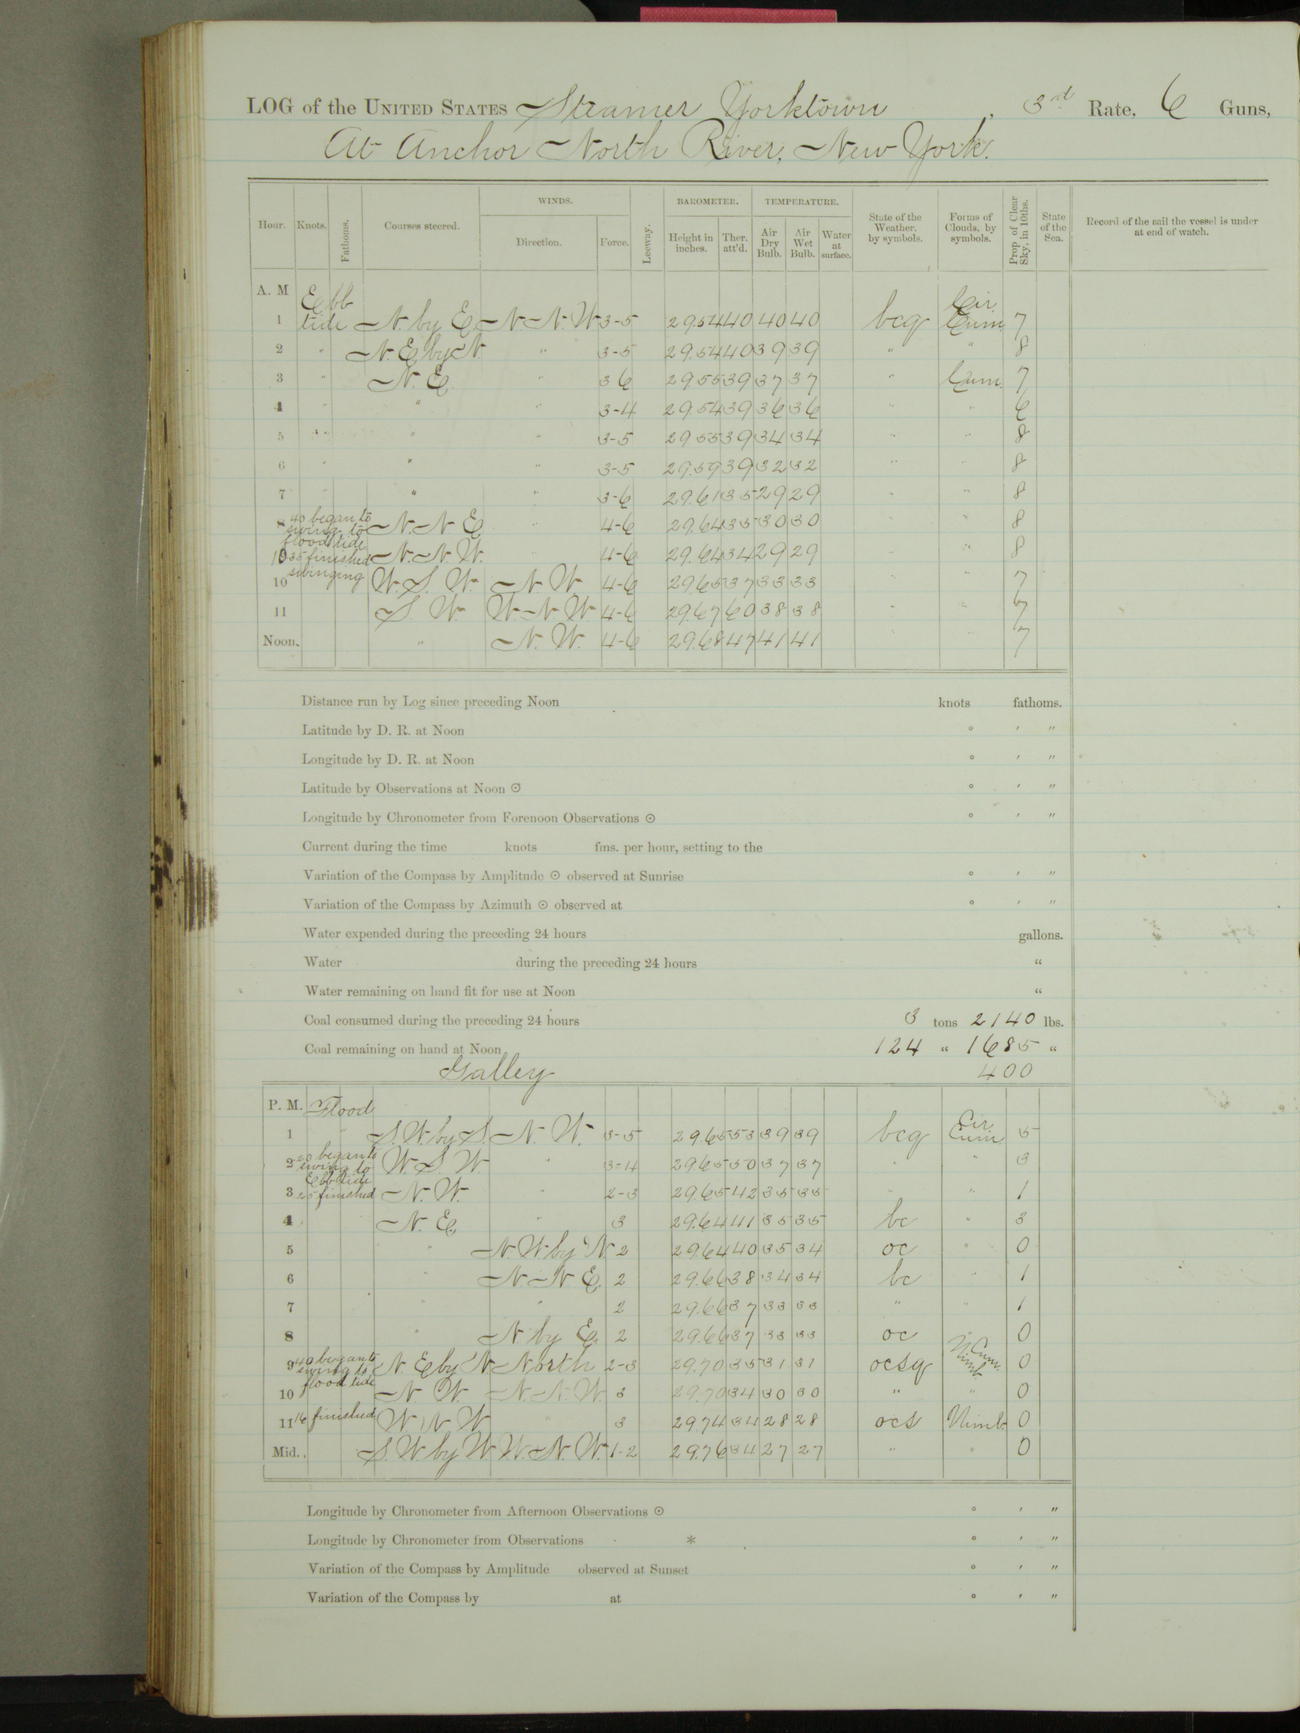 LOG of the UNITED STATES Steamer Yorktown, 3rd Rate, 6 Guns,
At Anchor North River, New York.
Hour. Knots. Fathoms. Courses steered. WINDS. Direction. Force. Leeway. BAROMETER. Height in inches. Ther. att'd. TEMPERATURE. Air Dry Bulb. Air Wet Bulb. Water at surface. State of the Weather, by symbols. Forms of Clouds, by symbols. Prop of Clear Sky, in 10ths. State of the Sea. Record of the sail the vessel is under at end of watch.
A. M Ebb Cir
1 tide N. by E. N.N.W 3-5 29.54 40 40 40 bcq Cum 7
2 " N.E by N " 3-5 29.54 40 39 39 " " 8
3 " N.E " 3 6 29.55 39 37 37 " Cum. 7
4 " " " 3-4 29.54 39 36 36 " " 6
5 " " " 3-5 29.55 39 34 34 " " 8
6 " " " 3-5 29.59 39 32 32 " " 8
7 " " " 3-6 29.61 35 29 29 " " 8
8 40 began to swing to flood tide N.N.E " 4-6 29.64 35 30 30 " " 8
10 35 finished swinging N.N.W. " 4-6 29.64 34 29 29 " " 8
10 W.S.W. N.W. 4-6 29.65 37 33 33 " " 7
11 S.W. W.N.W 4-6 29.67 60 38 38 " " 7
Noon. " N.W. 4-6 29.68 47 41 41 " " 7
Distance run by Log since preceding Noon knots fathoms.
Latitude by D. R. at Noon ° ′ ″
Longitude by D. R. at Noon ° ′ ″
Latitude by Observations at Noon ⊙ ° ′ ″
Longitude by Chronometer from Forenoon Observations ⊙ ° ′ ″
Current during the time knots fms. per hour, setting to the
Variation of the Compass by Amplitude ⊙ observed at Sunrise ° ′ ″
Variation of the Compass by Azimuth ⊙ observed at ° ′ ″
Water expended during the preceding 24 hours gallons.
Water during the preceding 24 hours "
Water remaining on hand fit for use at Noon "
Coal consumed during the preceding 24 hours 3 tons 2140 lbs.
Coal remaining on hand at Noon 124 " 1685 "
Galley 400
P. M. Flood
1 " S.W by S. N.W. 3-5 29.65 53 39 39 bcq Cir Cum 5
2 20 began to swing to Ebb tide W.S.W " 3-4 29.65 50 37 37 " " 3
3 25 finished N.W. " 2-3 29.65 42 35 35 " " 1
4 N.E. " 3 29.64 41 35 35 bc " 3
5 " N.W by N 2 29.64 40 35 34 oc " 0
6 " N.N.E. 2 29.66 38 34 34 bc " 1
7 " " 2 29.66 37 33 33 " " 1
8 " N by E. 2 29.66 37 33 33 oc 0
9 40 began to swing to flood tide N.E by N North 2-3 29.70 35 31 31 ocsq Cum. Nimb 0
10 N.W. N.N.W 3 29.70 34 30 30 " " 0
11 16 finished W.N.W " 3 29.74 34 28 28 ocs Nimb 0
Mid. S.W by W W.N.W. 1-2 29.76 34 27 27 " " 0
Longitude by Chronometer from Afternoon Observations ⊙ ° ′ ″
Longitude by Chronometer from Observations * ° ′ ″
Variation of the Compass by Amplitude observed at Sunset ° ′ ″
Variation of the Compass by at ° ′ ″